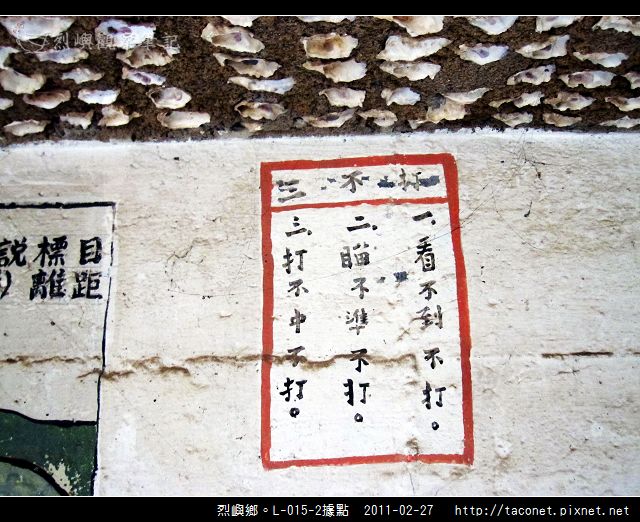 烈嶼觀察筆記
三不打
一、看不到不打。
二、瞄不準不打。
三、打不中不打。
目標說
距離
烈嶼鄉。L-015-2據點 2011-02-27 http://taconet.pixnet.net